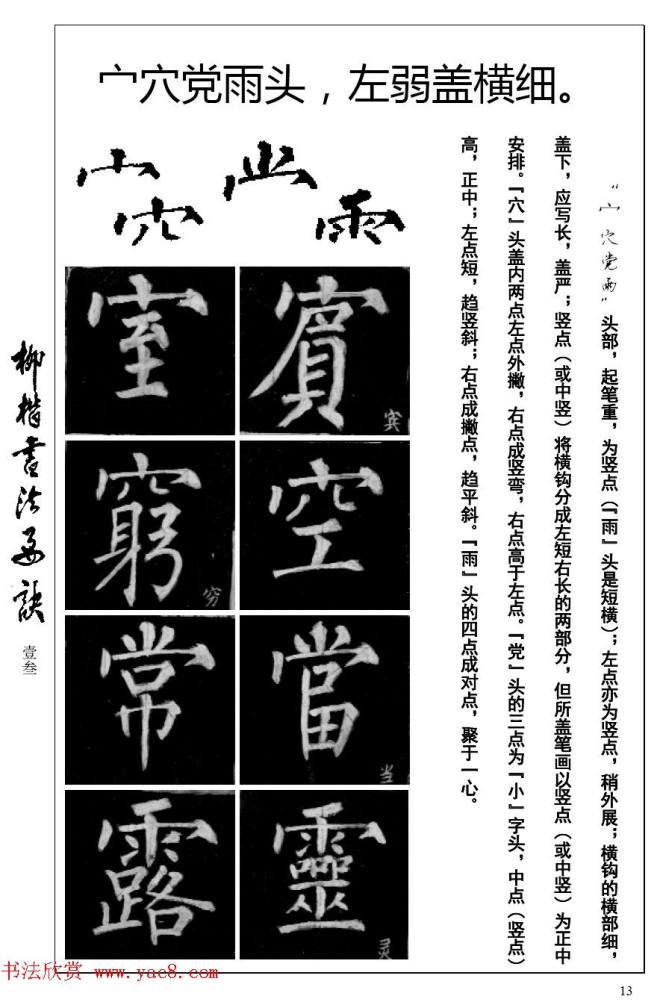 宀穴党雨头，左弱盖横细。
宀
穴
党
雨
“宀穴党雨”头部，起笔重，为竖点（「雨」头是短横）；左点亦为竖点，稍外展；横钩的横部细，
盖下，应写长，盖严；竖点（或中竖）将横钩分成左短右长的两部分，但所盖笔画以竖点（或中竖）为正中
安排。「穴」头盖内两点左点外撇，右点成竖弯，右点高于左点。「党」头的三点为「小」字头，中点（竖点）
高，正中；左点短，趋竖斜；右点成撇点，趋平斜。「雨」头的四点成对点，聚于一心。
室
賓
宾
窮
穷
空
常
當
当
露
靈
灵
柳楷書法要訣
壹叁
书法欣赏 www.yac8.com
13